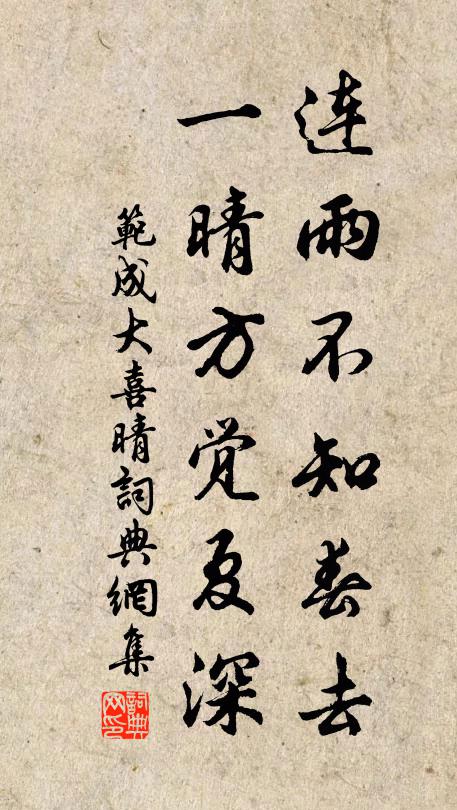 连雨不知春去
一晴方觉夏深
範成大喜晴詞典網集
詞典
网印